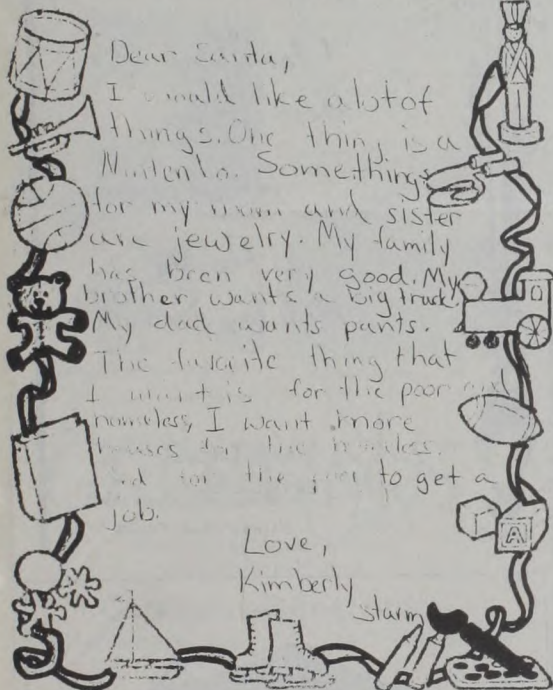 Dear Santa,
I would like a lot of
things. One thing is a
Nintento. Somethings
for my mom and sister
are jewelry. My family
has been very good. My
brother wants a big truck.
My dad wants pants.
The favorite thing that
I want is for the poor and
homeless, I want more
houses for the homeless.
And for the poor to get a
job.
Love,
Kimberly
Sturm
A